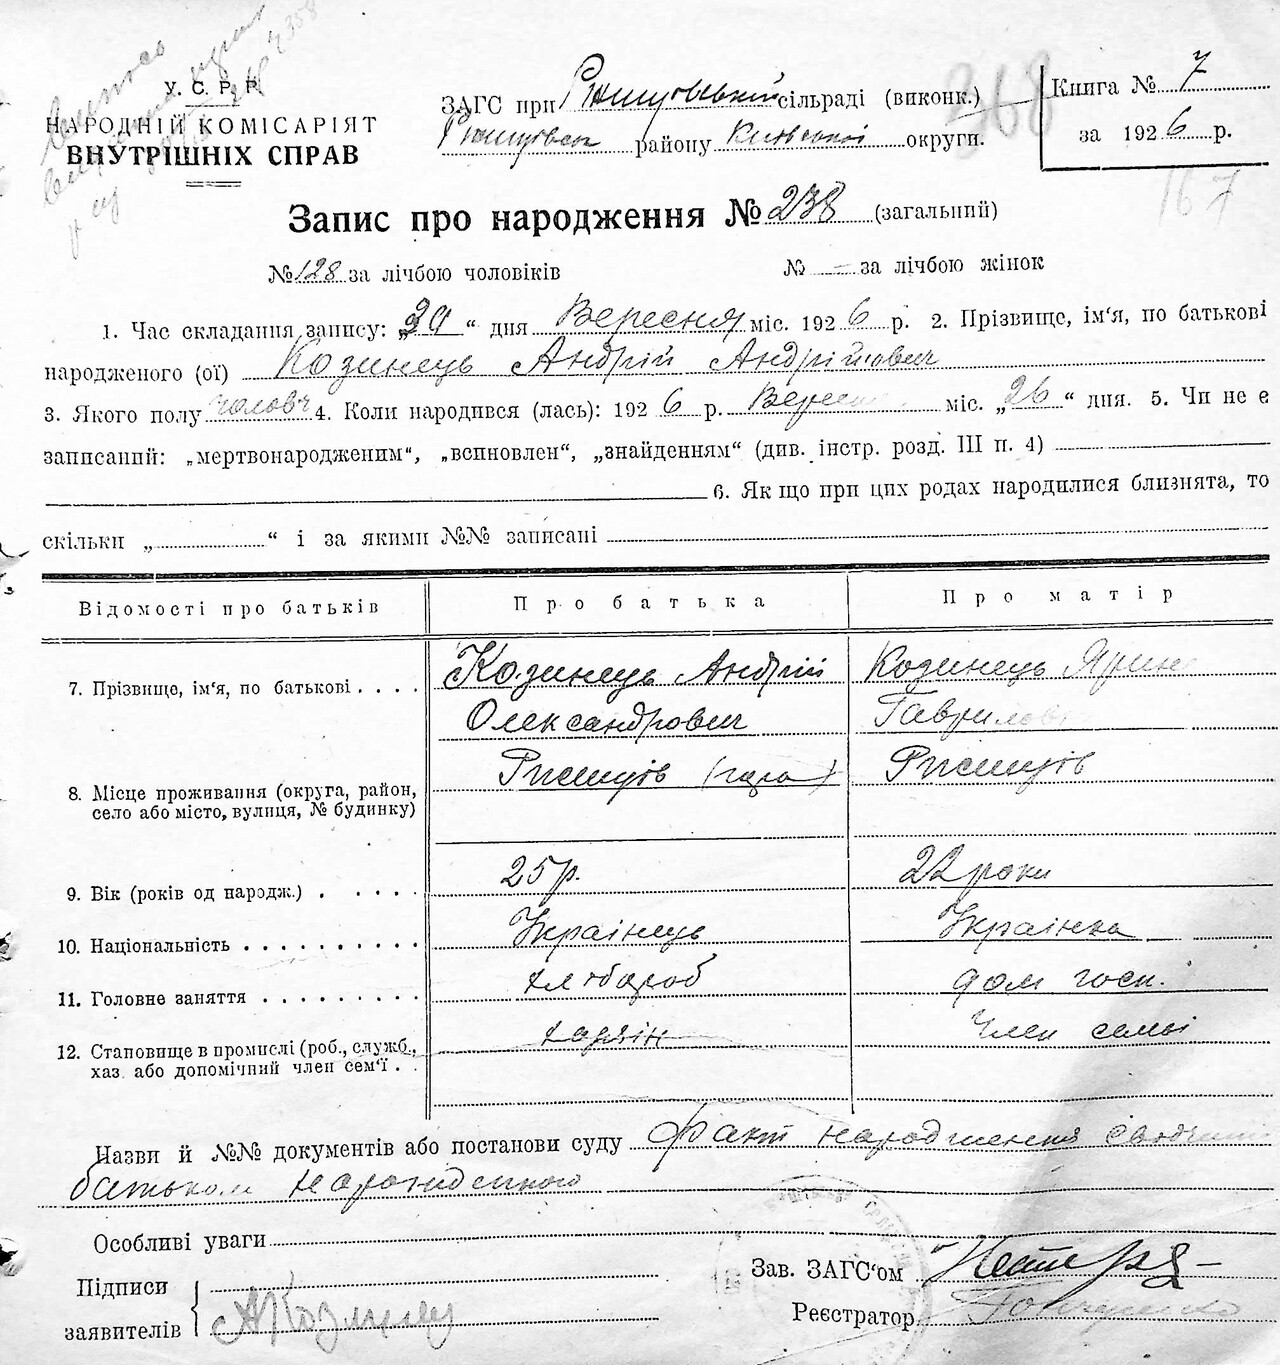 У. С. Р. Р.
НАРОДНІЙ КОМІСАРІЯТ
ВНУТРІШНІХ СПРАВ
ЗАГС при Ржищівській сільраді (виконк.)
Ржищівськ району Київської округи.
368
Книга № 7
за 1926 р.
167
Запис про народження № 238 (загальний)
№ 128 за лічбою чоловіків № — за лічбою жінок
1. Час складання запису: „30“ дня Вересня міс. 1926 р. 2. Прізвище, ім‘я, по батькові
народженого (ої) Козинець Андрій Андрійович
3. Якого полу чолов 4. Коли народився (лась): 1926 р. Вересня міс. „26“ дня. 5. Чи не є
записаний: „мертвонародженим“, „всиновлен“, „знайденям“ (див. інстр. розд. III п. 4)
6. Як що при цих родах народилися близнята, то
скільки „ “ і за якими №№ записані
Відомості про батьків Про батька Про матір
7. Прізвище, ім‘я, по батькові . . . . Козинець Андрій Олександрович Козинець Ярин Гаврилов
8. Місце проживання (округа, район, село або місто, вулиця, № будинку) Ржищів Ржищів
9. Вік (років од народж.) . . . . . 25 р. 22 роки
10. Національність . . . . . . . . . . Українець Українка
11. Головне заняття . . . . . . . . . хлібороб дом госп.
12. Становище в промислі (роб., служб., хаз. або допомічний член сем‘ї . . хазяїн Член семьї
Назви й №№ документів або постанови суду Факт народження свідчить
батьком народженного
Особливі уваги
Підписи
заявителів А Козинец
Зав. ЗАГС‘ом
Реєстратор Гончаренко